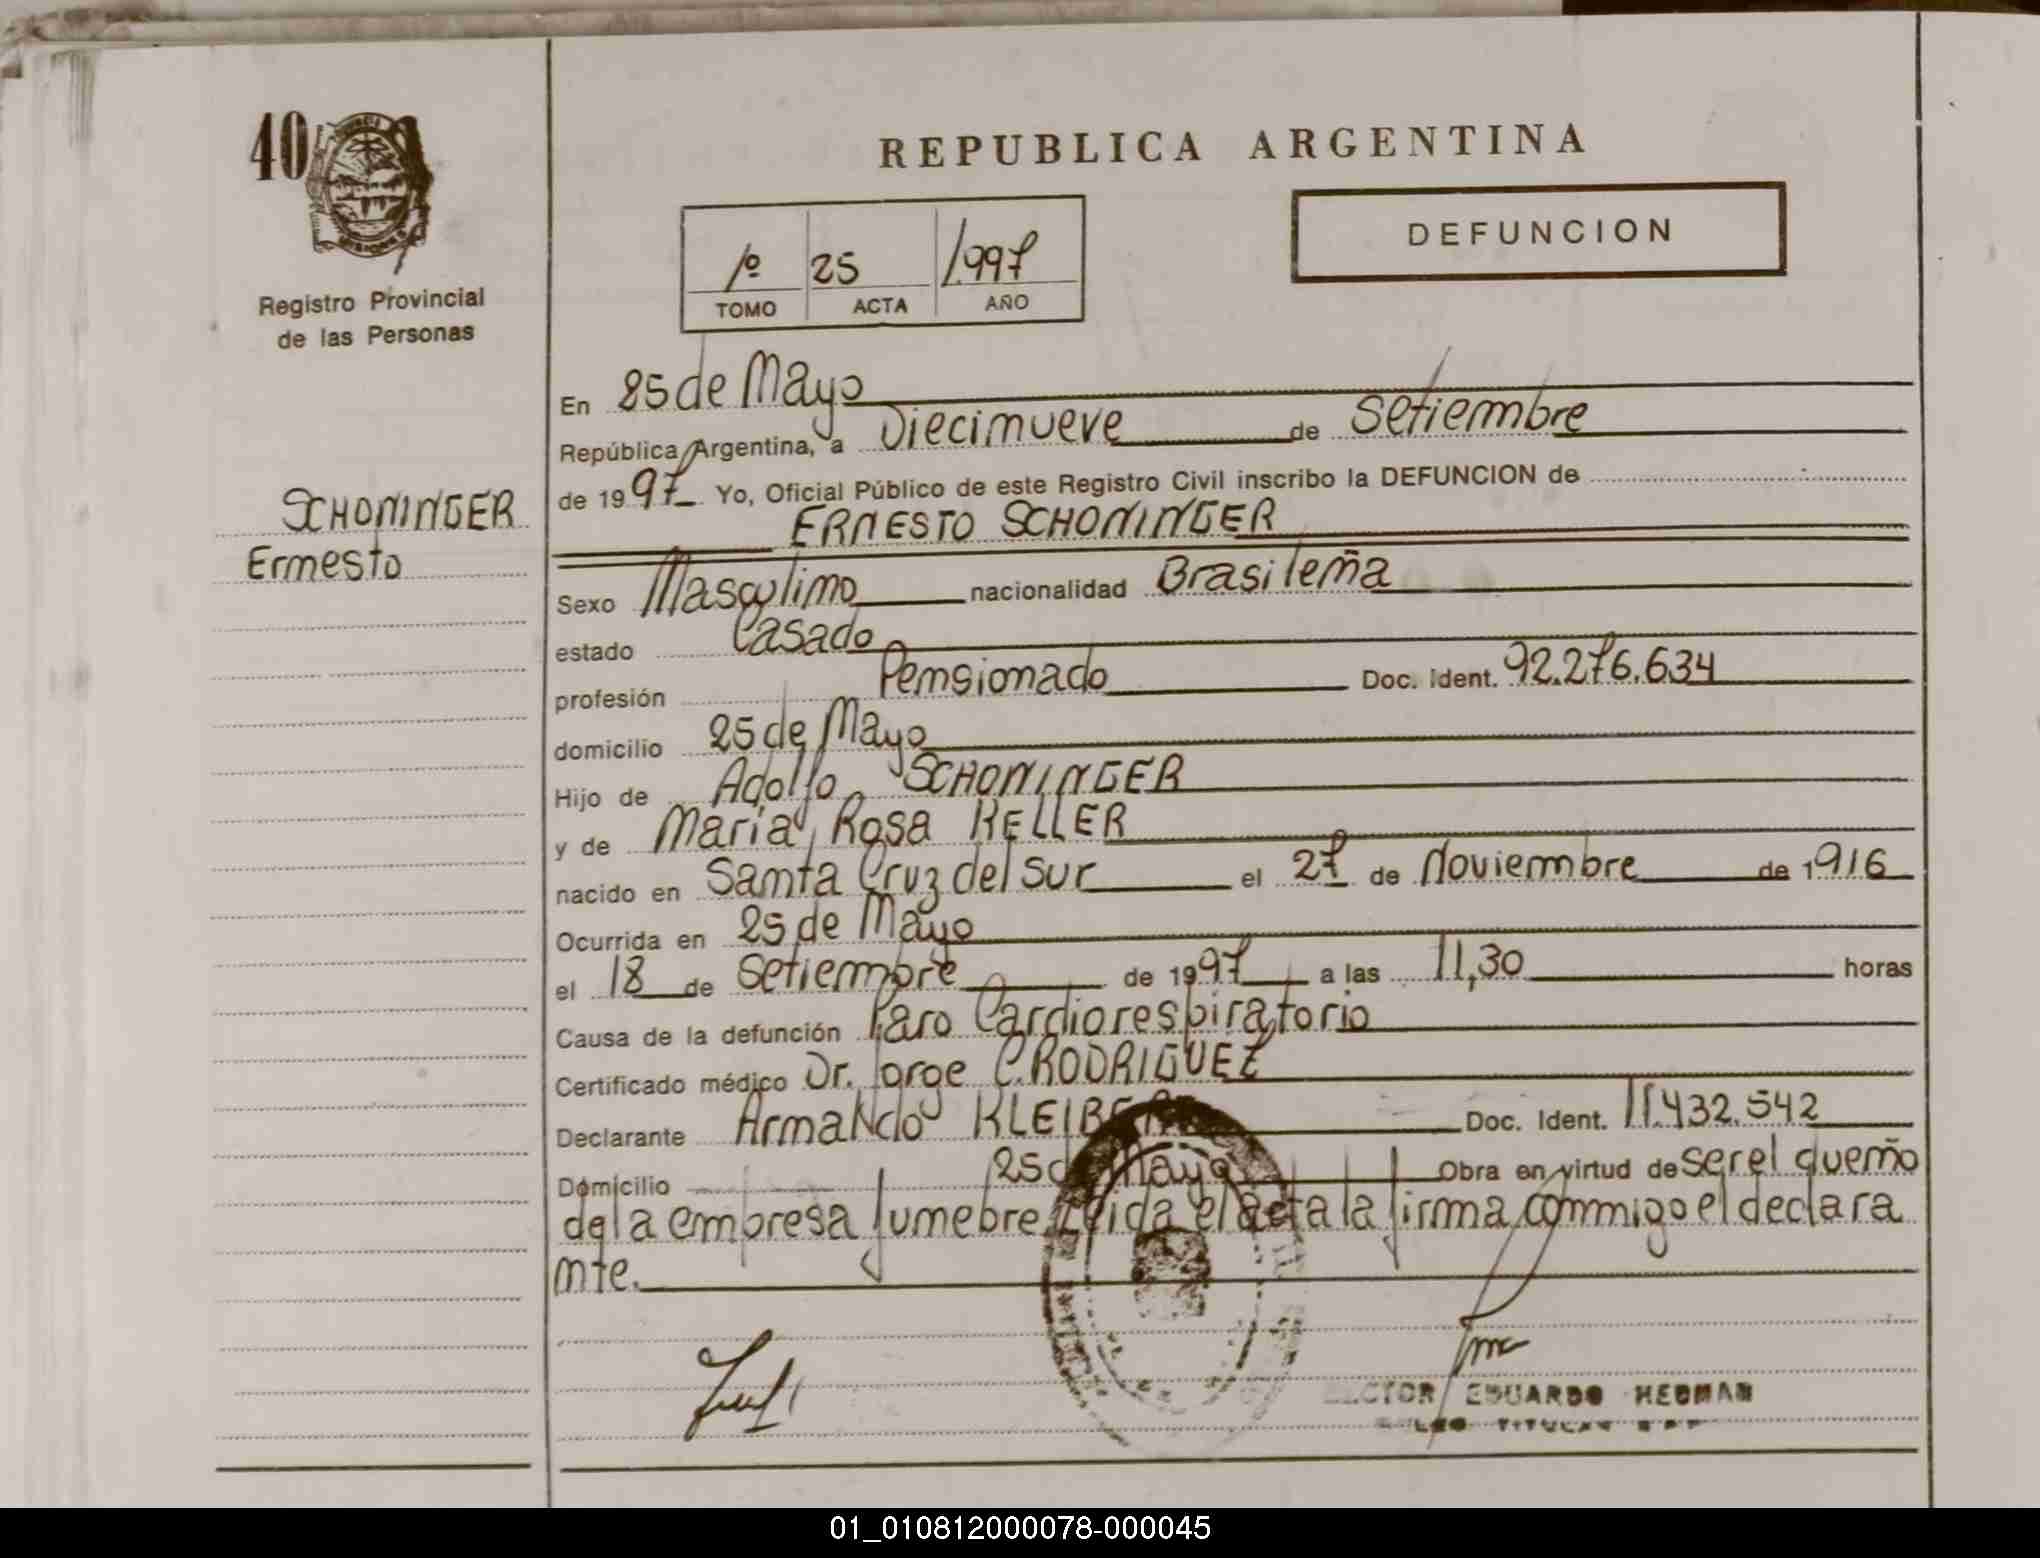 40
REPUBLICA ARGENTINA
DEFUNCION
1º 25 1.997
TOMO ACTA AÑO
Registro Provincial
de las Personas
SCHONINGER
Ernesto
En 25 de Mayo
República Argentina, a Diecinueve de Setiembre
de 1997 Yo, Oficial Público de este Registro Civil inscribo la DEFUNCION de
ERNESTO SCHONINGER
Sexo Masculino nacionalidad Brasileña
estado Casado
profesión Pensionado Doc. Ident. 92.276.634
domicilio 25 de Mayo
Hijo de Adolfo SCHONINGER
y de María Rosa KELLER
nacido en Santa Cruz del Sur el 27 de Noviembre de 1916
Ocurrida en 25 de Mayo
el 18 de Setiembre de 1997 a las 11,30 horas
Causa de la defunción Paro Cardiorespiratorio
Certificado médico Dr. Jorge C. RODRIGUEZ
Declarante Armando Doc. Ident. 11.432.542
Domicilio 25 de Mayo Obra en virtud de ser el dueño
de la empresa fumebre Leida el acta la firma conmigo el declara
nte.
EDUARDO HEDMAN
TITULAR
01_010812000078-000045